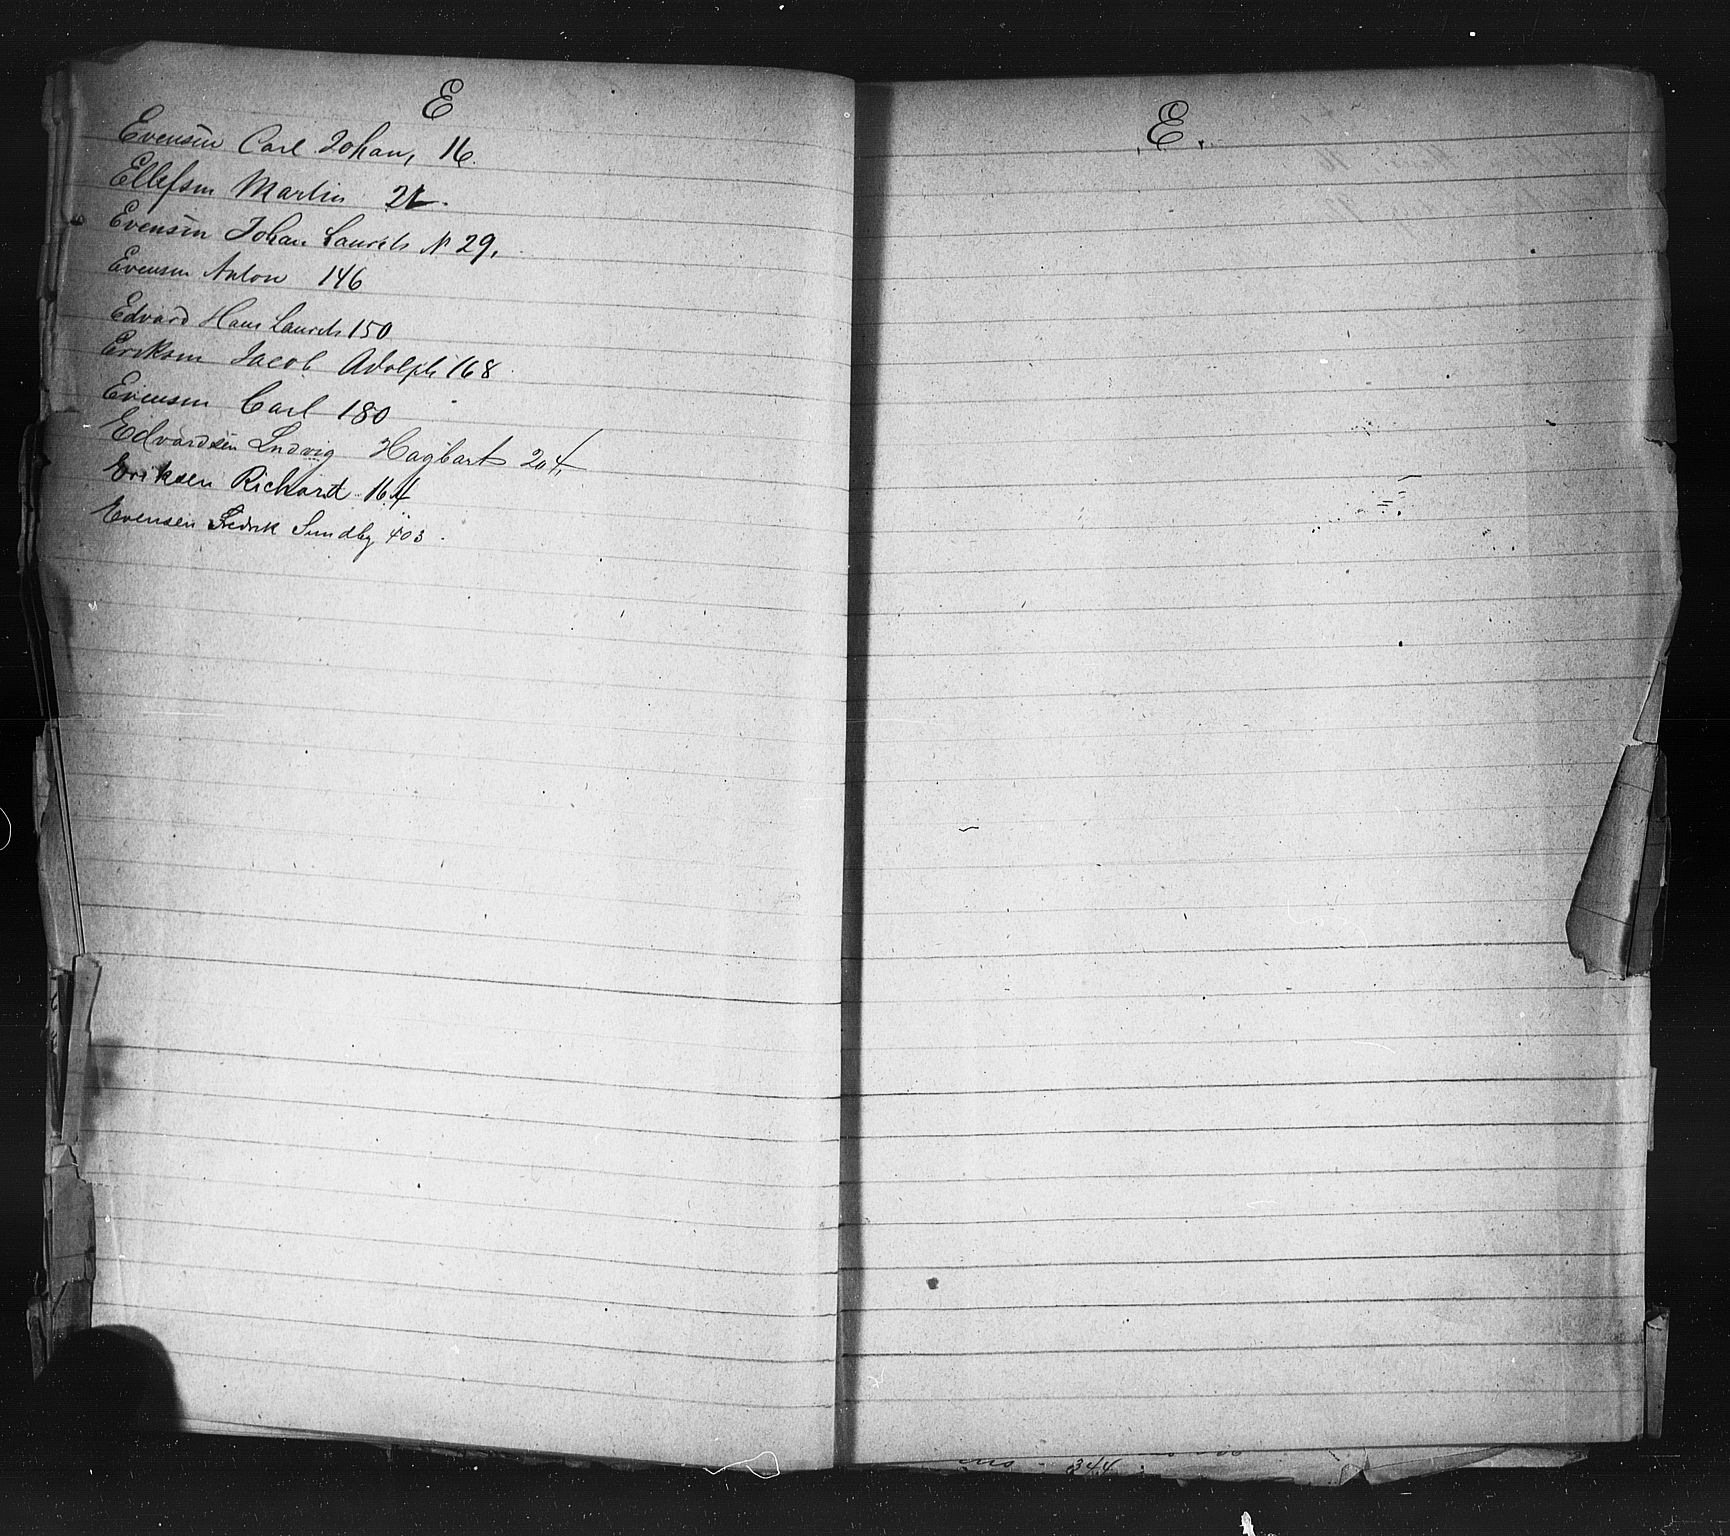 E
Evensen Carl Johan, 16.
Ellefsen Martin 21.
Evensen Johan Laurits N 29,
Evensen Anton 146
Edvard Hans Laurits 150
Eriksen Jacob Adolph 168
Evensen Carl 180
Edvardsen Ludvig Hagbart 204,
Eriksen Richard 164
Evensen Fredrik Sundby 403.
E.
344